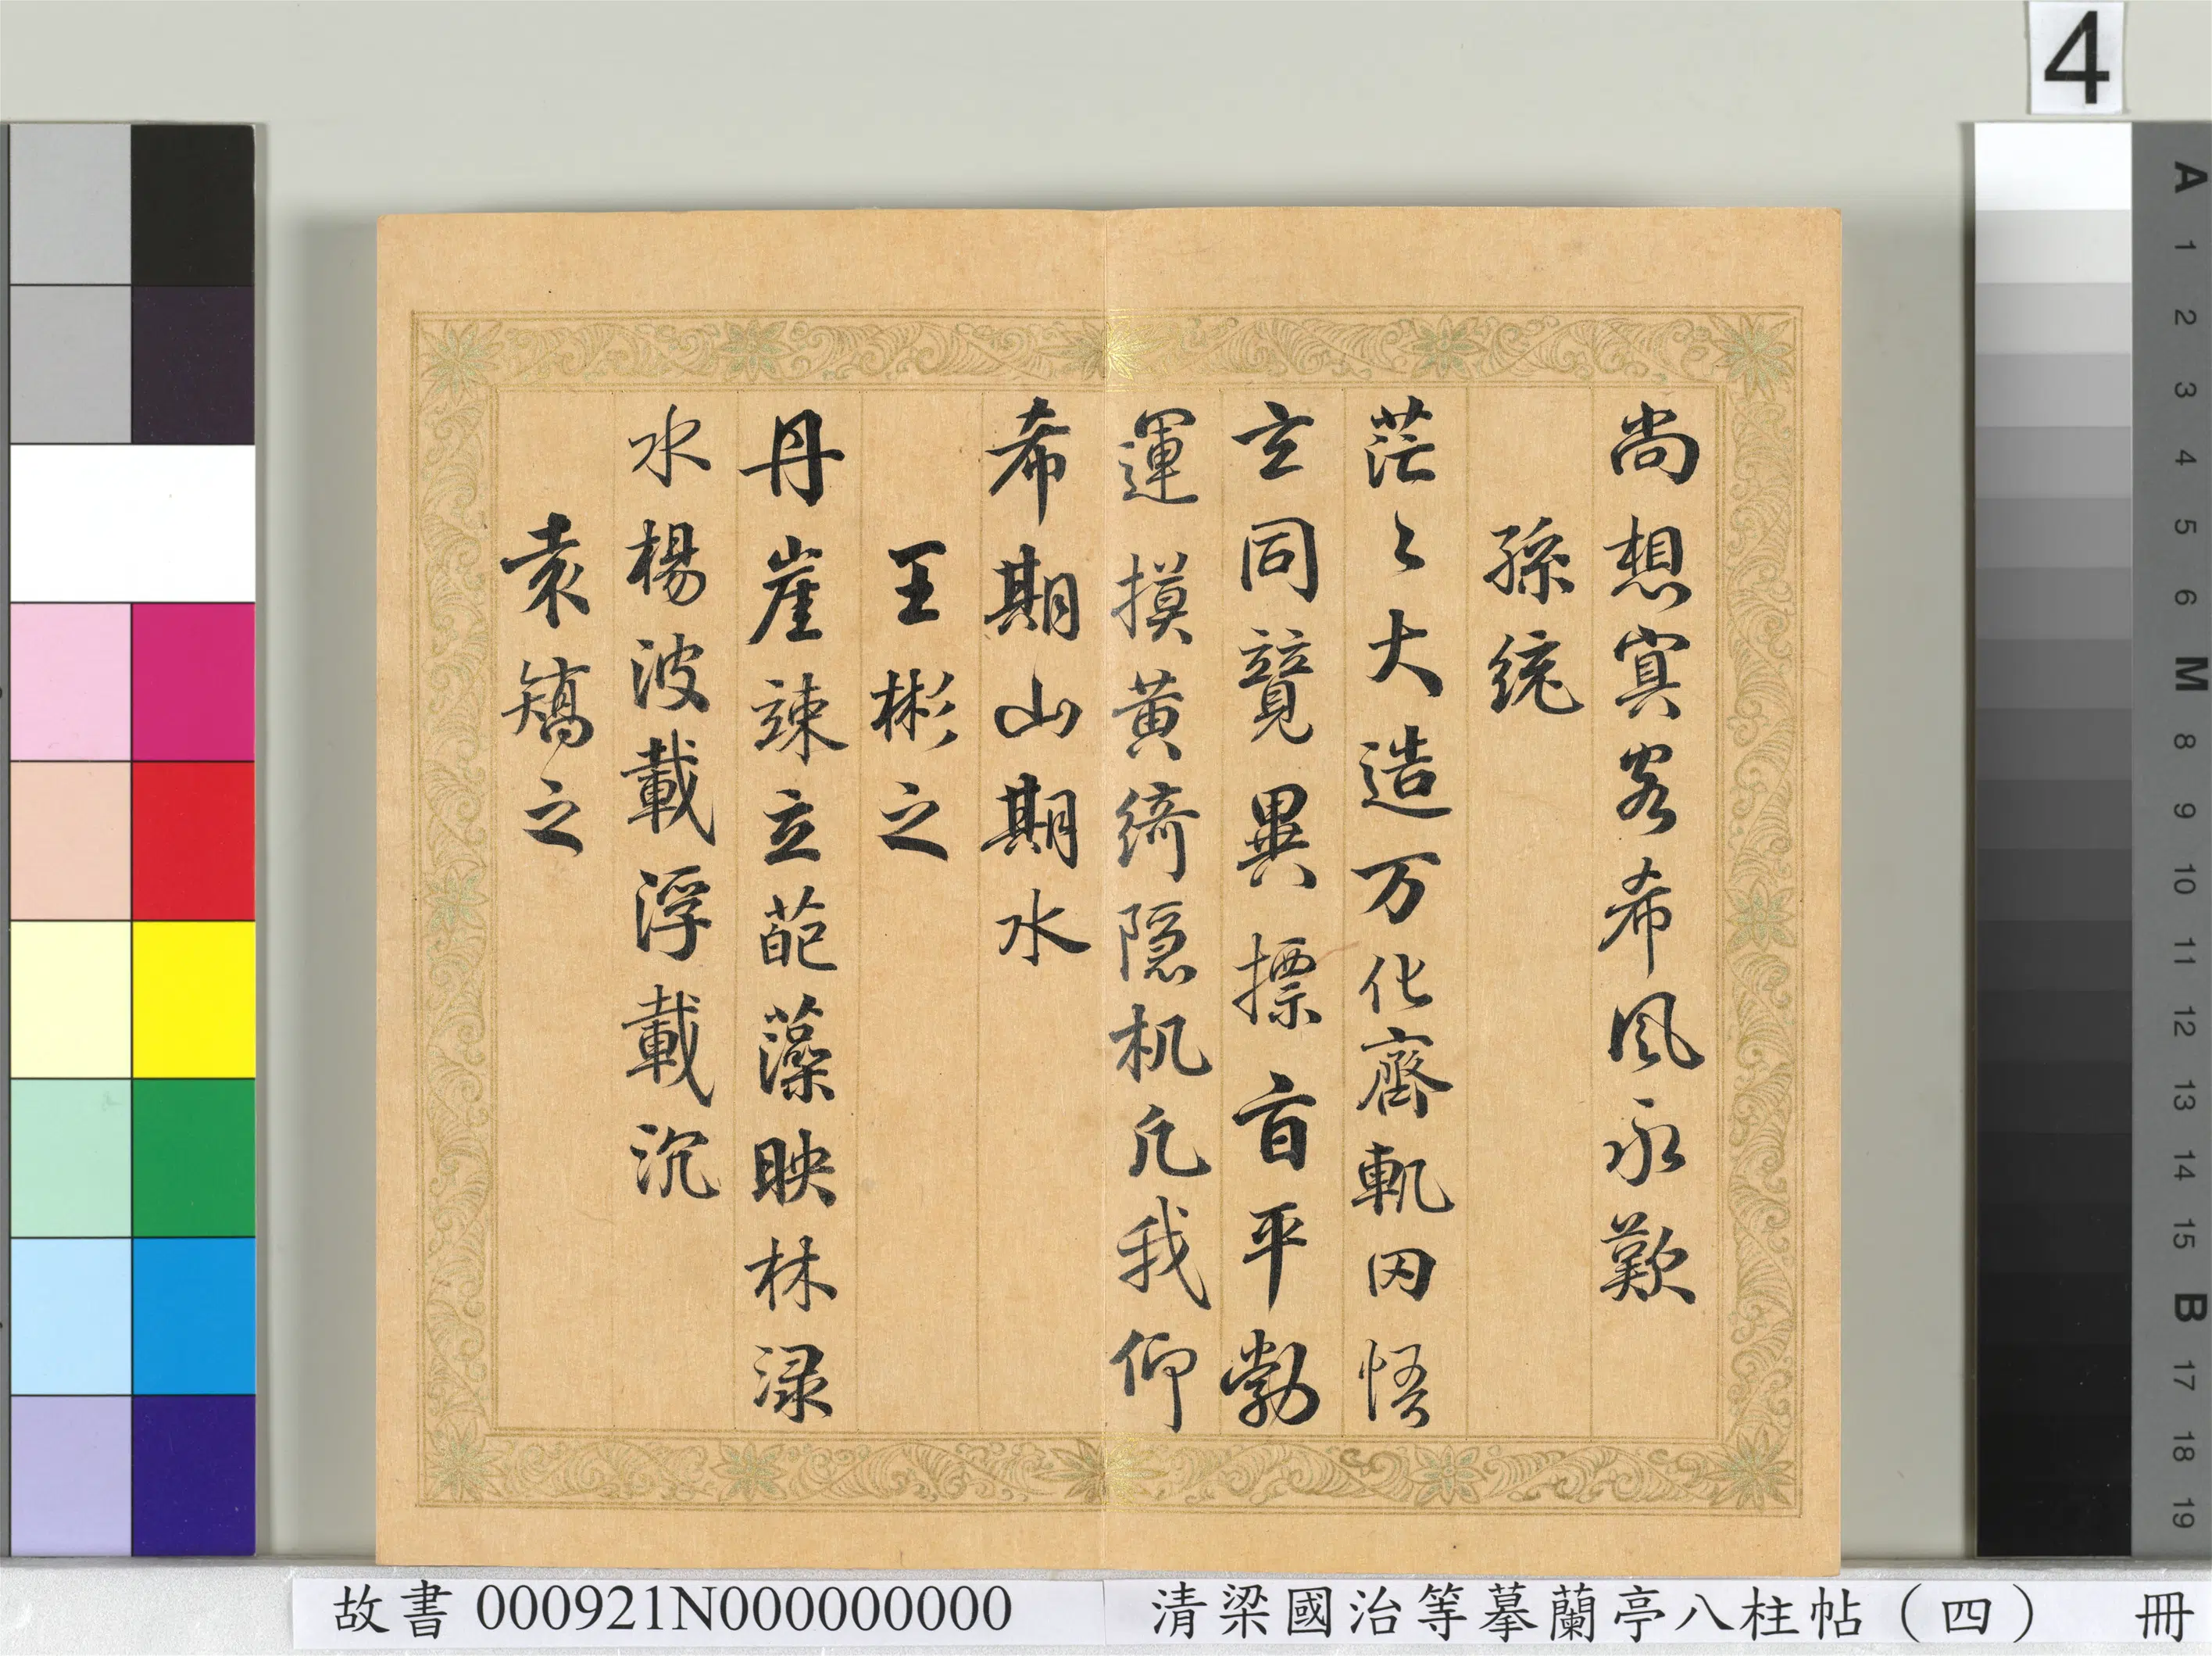 尚想冥客希風永歎
孫統
茫〻大造万化齊軌罔悟
玄同競異摽旨平勃
運摸黄綺隐机凢我仰
希期山期水
王彬之
丹崖竦立葩藻映林渌
水楊波載浮載沉
袁矯之
4
A
1
2
3
4
5
6
M
8
9
10
11
12
13
14
15
B
17
18
19
故書 000921N000000000
清梁國治等摹蘭亭八柱帖（四） 冊